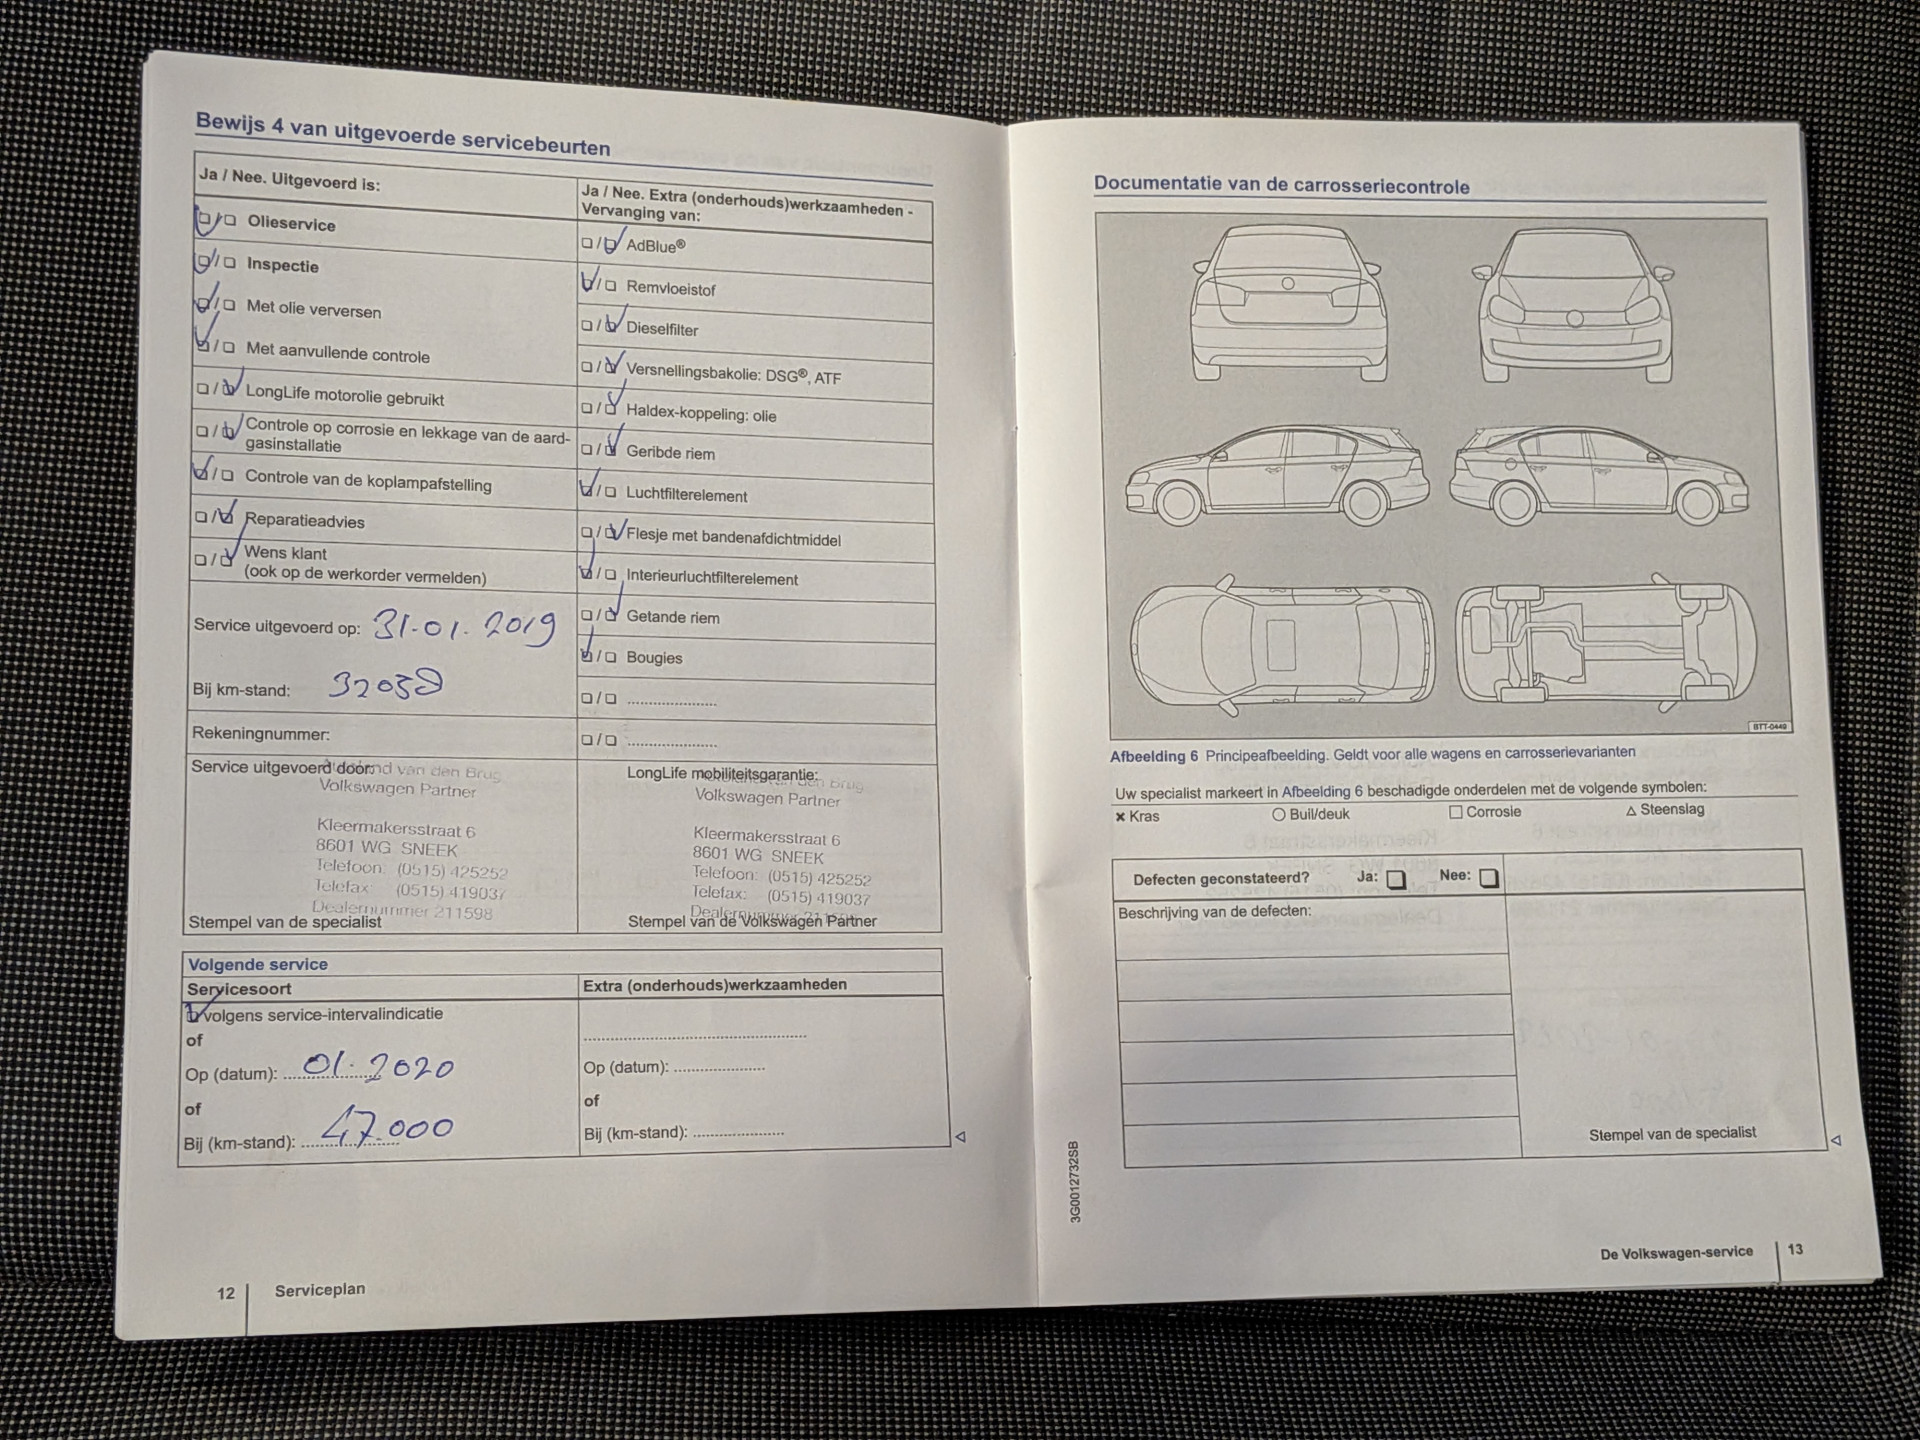 Bewijs 4 van uitgevoerde servicebeurten
Ja / Nee. Uitgevoerd is:
Olieservice
Inspectie
Met olie verversen
Met aanvullende controle
LongLife motorolie gebruikt
Controle op corrosie en lekkage van de aard-
gasinstallatie
Controle van de koplampafstelling
Reparatieadvies
Wens klant
(ook op de werkorder vermelden)
Service uitgevoerd op: 31-01-2019
Bij km-stand: 32038
Rekeningnummer:
Ja / Nee. Extra (onderhouds)werkzaamheden -
Vervanging van:
AdBlue®
Remvloeistof
Dieselfilter
Versnellingsbakolie: DSG®, ATF
Haldex-koppeling: olie
Geribde riem
Luchtfilterelement
Flesje met bandenafdichtmiddel
Interieurluchtfilterelement
Getande riem
Bougies
Service uitgevoerd door:
van den Brug
Volkswagen Partner
Kleermakersstraat 6
8601 WG SNEEK
Telefoon: (0515) 425252
Telefax: (0515) 419037
Dealernummer 211598
Stempel van de specialist
LongLife mobiliteitsgarantie:
van den Brug
Volkswagen Partner
Kleermakersstraat 6
8601 WG SNEEK
Telefoon: (0515) 425252
Telefax: (0515) 419037
Dealernummer
Stempel van de Volkswagen Partner
Volgende service
Servicesoort
volgens service-intervalindicatie
of
Op (datum): 01-2020
of
Bij (km-stand): 47.000
Extra (onderhouds)werkzaamheden
Op (datum):
of
Bij (km-stand):
12 Serviceplan
Documentatie van de carrosseriecontrole
BTT-0449
Afbeelding 6 Principeafbeelding. Geldt voor alle wagens en carrosserievarianten
Uw specialist markeert in Afbeelding 6 beschadigde onderdelen met de volgende symbolen:
× Kras ○ Buil/deuk □ Corrosie △ Steenslag
Defecten geconstateerd? Ja: Nee:
Beschrijving van de defecten:
Stempel van de specialist
3G0012732SB
De Volkswagen-service 13